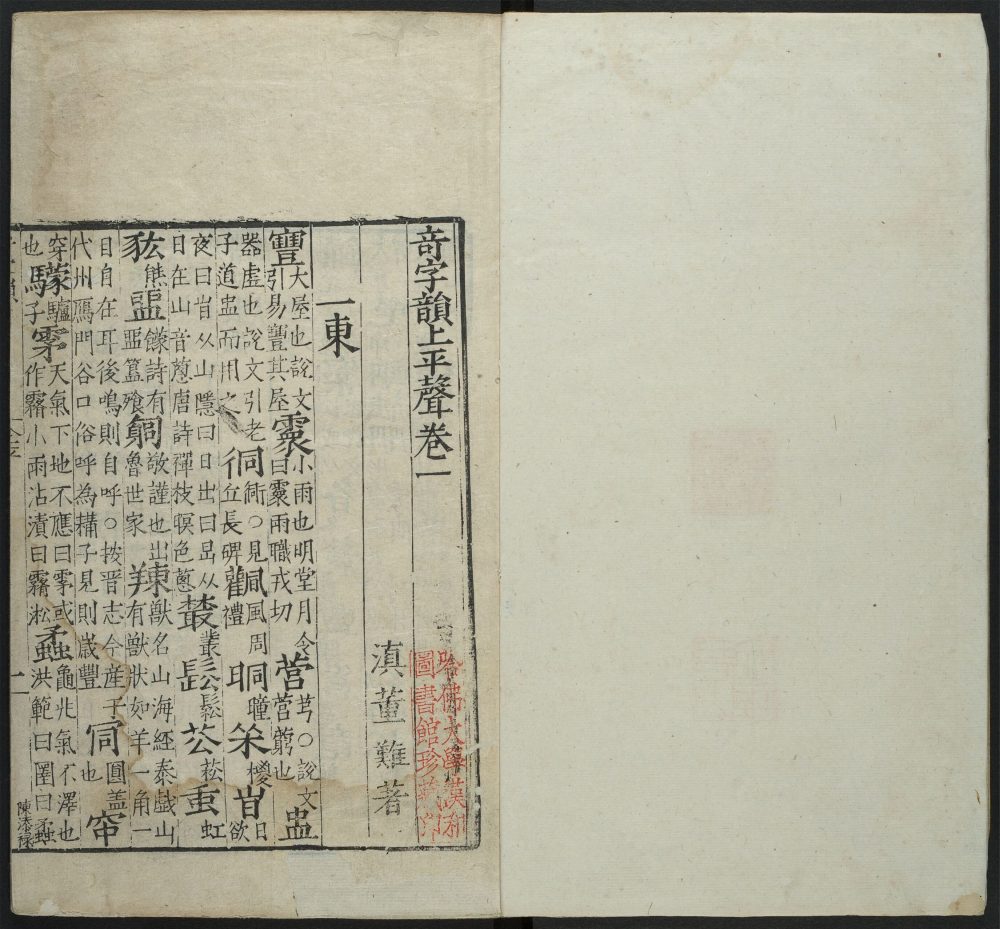 竒字韻上平聲卷一
哈佛大學漢和圖書館珍藏印
滇董難著
一東
寷大屋也說文引易寷其屋霥小雨也明堂月令曰霥雨職戎切营芎○說文营藭也盅
器虛也說文引老子道盅而用之衕○見丘長碑風周禮瞳椶日欲
夜曰从山隱曰日出曰旵从日在山音蔥唐詩禪枝暝色蔥叢鬆菘虹
熊盥饛詩有盥簋飧魯世家敬謹也出䍶獸名山海經泰戲山有獸狀如羊一角一
目自在耳後鳴則自呼○按晋志今產于代州鴈門谷口俗呼為䍶子見則歲豐圓盖也
穹驢子也天氣下地不應曰雺或作霧小雨沾漬曰霧淞蟊龜兆氣不澤也洪範曰圛曰蟊
一
陳添祿